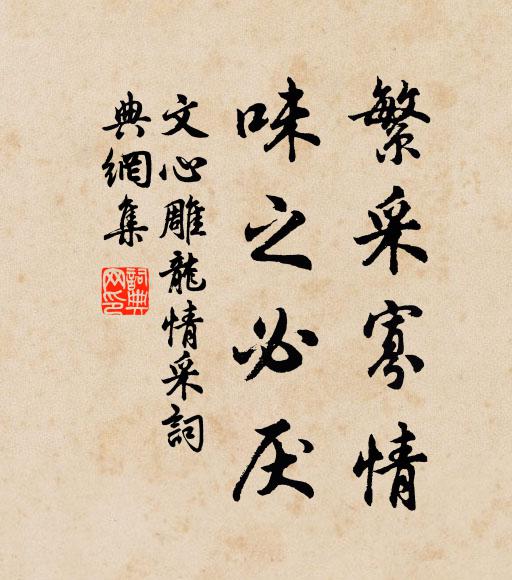 繁采寡情
味之必厌
文心雕龍情采詞
典網集
詞典
网印